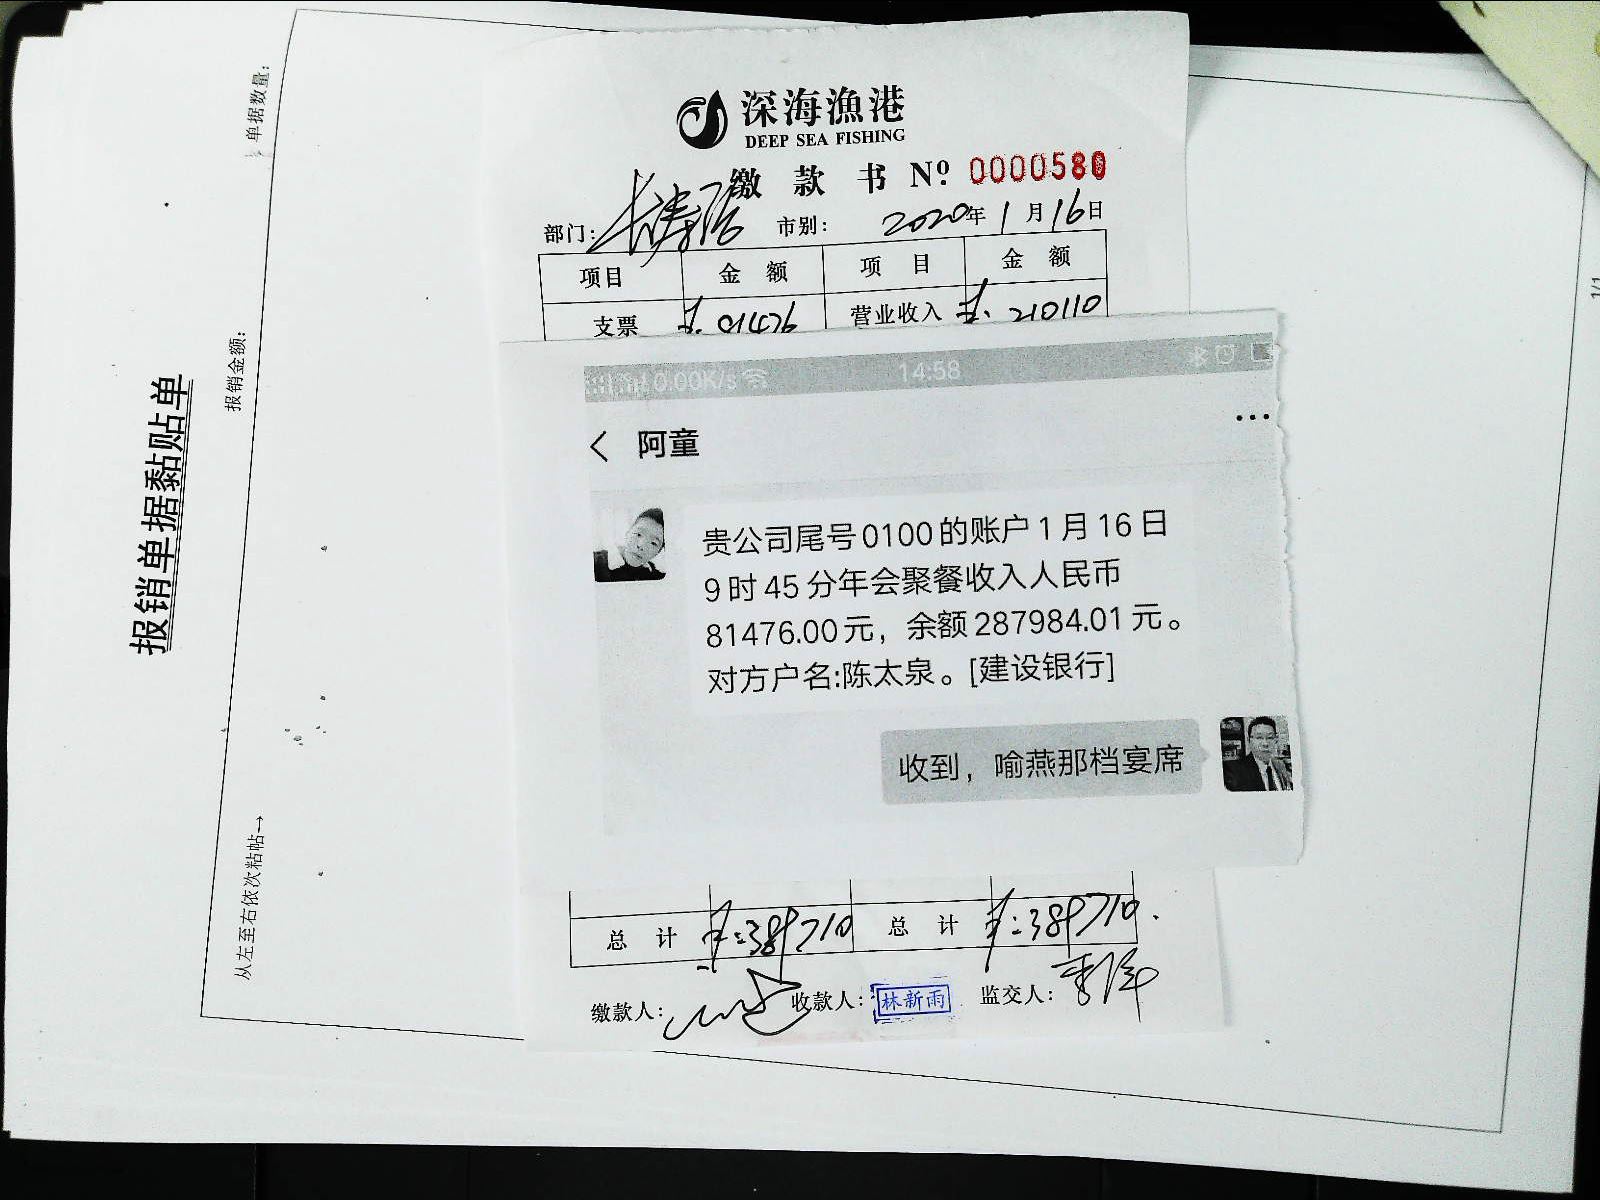 报销单据黏贴单
单据数量:
报销金额:
从左至右依次粘帖→
深海渔港
DEEP SEA FISHING
缴款书 Nº 0000580
部门: 长寿路 市别: 2020年1月16日
项目 金额 项目 金额
支票 营业收入 ¥: 210110
0.00K/s 14:58
阿童
贵公司尾号0100的账户1月16日
9时45分年会聚餐收入人民币
81476.00元，余额287984.01元。
对方户名:陈太泉。[建设银行]
收到，喻燕那档宴席
总计 ¥:389710 总计 ¥:389710.
缴款人: 收款人: 林新雨 监交人:
1/1